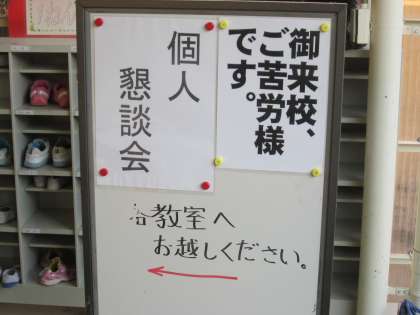 御来校、
ご苦労様
です。
個人
懇談会
各教室へ
お越しください。